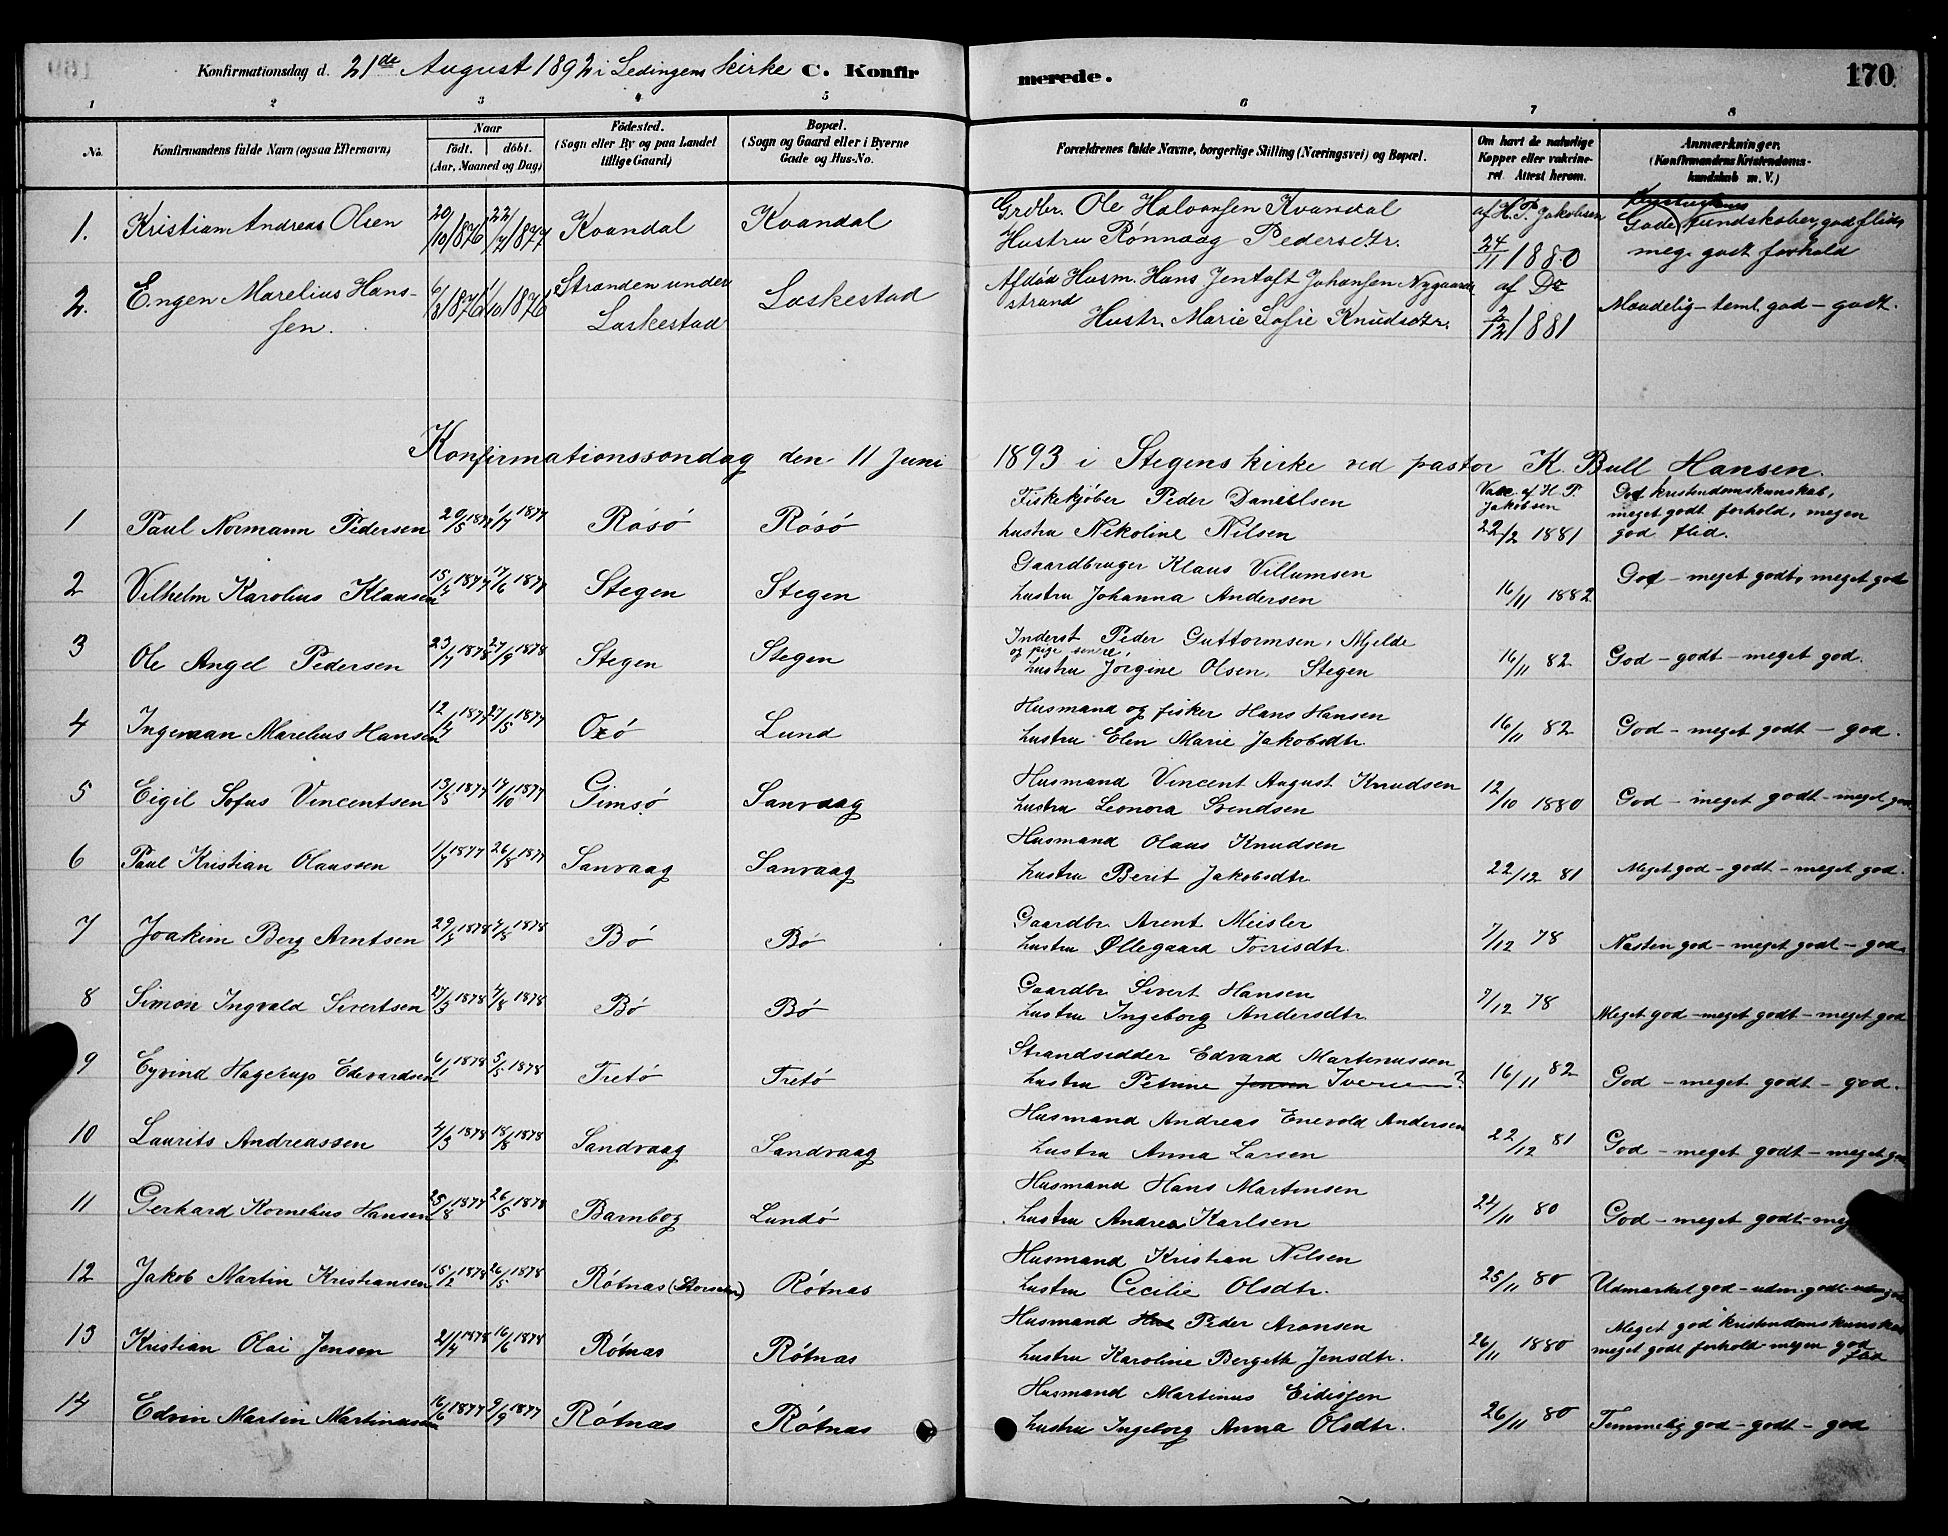 Konfirmationsdag d. 21de August 1892 i Ledingens kirke C. Konfir merede. 170
1 2 3 4 5 6 7 8
No. Konfirmandens fulde Navn (ogsaa Efternavn) Naar födt. döbt. (Aar, Maaned og Dag) Födested. (Sogn eller By og paa Landet tillige Gaard) Bopæl. (Sogn og Gaard eller i Byerne Gade og Hus-No. Forældrenes fulde Navne, borgerlige Stilling (Næringsvei) og Bopæl. Om havt de naturlige Kopper eller vakcineret. Attest herom. Anmærkninger. (Konfirmandens Kristendomskundskab m. V.)
1. Kristian Andreas Olsen 20/10 1876 22/7 1877 Kvandal Kvandal Grdbr. Ole Halvorsen Kvandal af H. P. Jakobsen Gode Kundskaber, god flid,
Hustru Rønnaag Pedersdtr. 24/11 1880 meg. godt forhold
2. Engen Marelius Hans- 6/3 1876 1/10 1876 Stranden under Laskestad Afdød Husm. Hans Jentoft Johansen Nygaards af Do Maadelig – teml. god – godt.
sen. Laskestad strand Hustr. Marie Sofie Knudsdtr. 2/12 1881
Konfirmationssondag den 11 Juni 1893 i Stegens kirke ved pastor K. Bull Hansen.
1 Paul Normann Pedersen 20/5 1877 1/7 1877 Røsø Røsø Fiskekjøber Peder Danielsen Vacc. af H. P. Jakobsen God kristendomskunskab,
hustru Nekoline Nilsen 22/2 1881 meget godt forhold, megen god flid.
2 Vilhelm Karolius Klausen 15/4 1877 17/6 1877 Stegen Stegen Gaardbruger Klaus Villumsen God – meget godt, meget god
hustru Johanna Andersen 16/11 1882
3 Ole Angel Pedersen 23/7 1878 27/9 1878 Stegen Stegen Inderst Peder Guttormsen, Mjelde
og pige senere, hustru Jørgine Olsen, Stegen 16/11 82 God – godt – meget god.
4 Ingeman Marelius Hansen 12/4 1877 27/5 1877 Oxø Lund Husmand og fisker Hans Hansen
hustru Elen Marie Jakobsdtr. 16/11 82 God – meget godt – god.
5 Eigil Sofus Vincentsen 13/5 1877 14/10 1877 Gimsø Sanvaag Husmand Vincent August Knudsen
hustru Leonora Svendsen 12/10 1880 God – meget godt – meget god
6 Paul Kristian Olaussen 1/7 1877 26/8 1877 Sanvaag Sanvaag Husmand Olaus Knudsen
hustru Berit Jakobsdtr. 22/12 81 Meget god – godt – meget god.
7 Joakim Berg Arntsen 29/3 1878 4/8 1878 Bø Bø Gaardbr. Arent Meisler
hustru Øllegaard Torrisdtr. 7/12 78 Næsten god – meget godt – god.
8 Simon Ingvald Sivertsen 27/3 1878 4/8 1878 Bø Bø Gaardbr. Sivert Hansen
hustru Ingeborg Andersdtr. 7/12 78 Meget god – meget godt – meget god
9 Eyvind Hagerup Edevardsen 6/1 1878 5/5 1878 Tretø Tretø Strandsidder Edvard Martinussen
hustru Petrine Iversen ? 16/11 82 God – meget godt – god.
10 Laurits Andreassen 4/3 1878 18/8 1878 Sandvaag Sandvaag Husmand Andreas Enevold Andersen
hustru Anna Larsen 22/12 81 God – meget godt – meget god
11 Gerhard Kornelius Hansen 25/8 1877 26/5 1878 Barnbog Lundø Husmand Hans Martensen
hustru Andrea Karlsen 24/11 80 God – meget godt – meg
12 Jakob Martin Kristiansen 15/2 1878 26/5 1878 Røtnas (Storseten) Røtnas Husmand Kristian Nilsen
hustru Cecilie Olsdtr. 25/11 80 Udmarket god – udm. godt – udm. god
13 Kristian Olai Jensen 21/4 1878 16/6 1878 Røtnas Røtnas Husmand Peder Aronsen Meget god kristendomskunskab
hustru Karoline Bergeth Jensdtr. 26/11 1880 meget godt forhold – megen god flid
14 Edvin Martin Martinussen 16/6 1877 9/9 1877 Røtnas Røtnas Husmand Martinus Eidissen
hustru Ingeborg Anna Olsdtr. 26/11 80 Temmelig god – godt – god